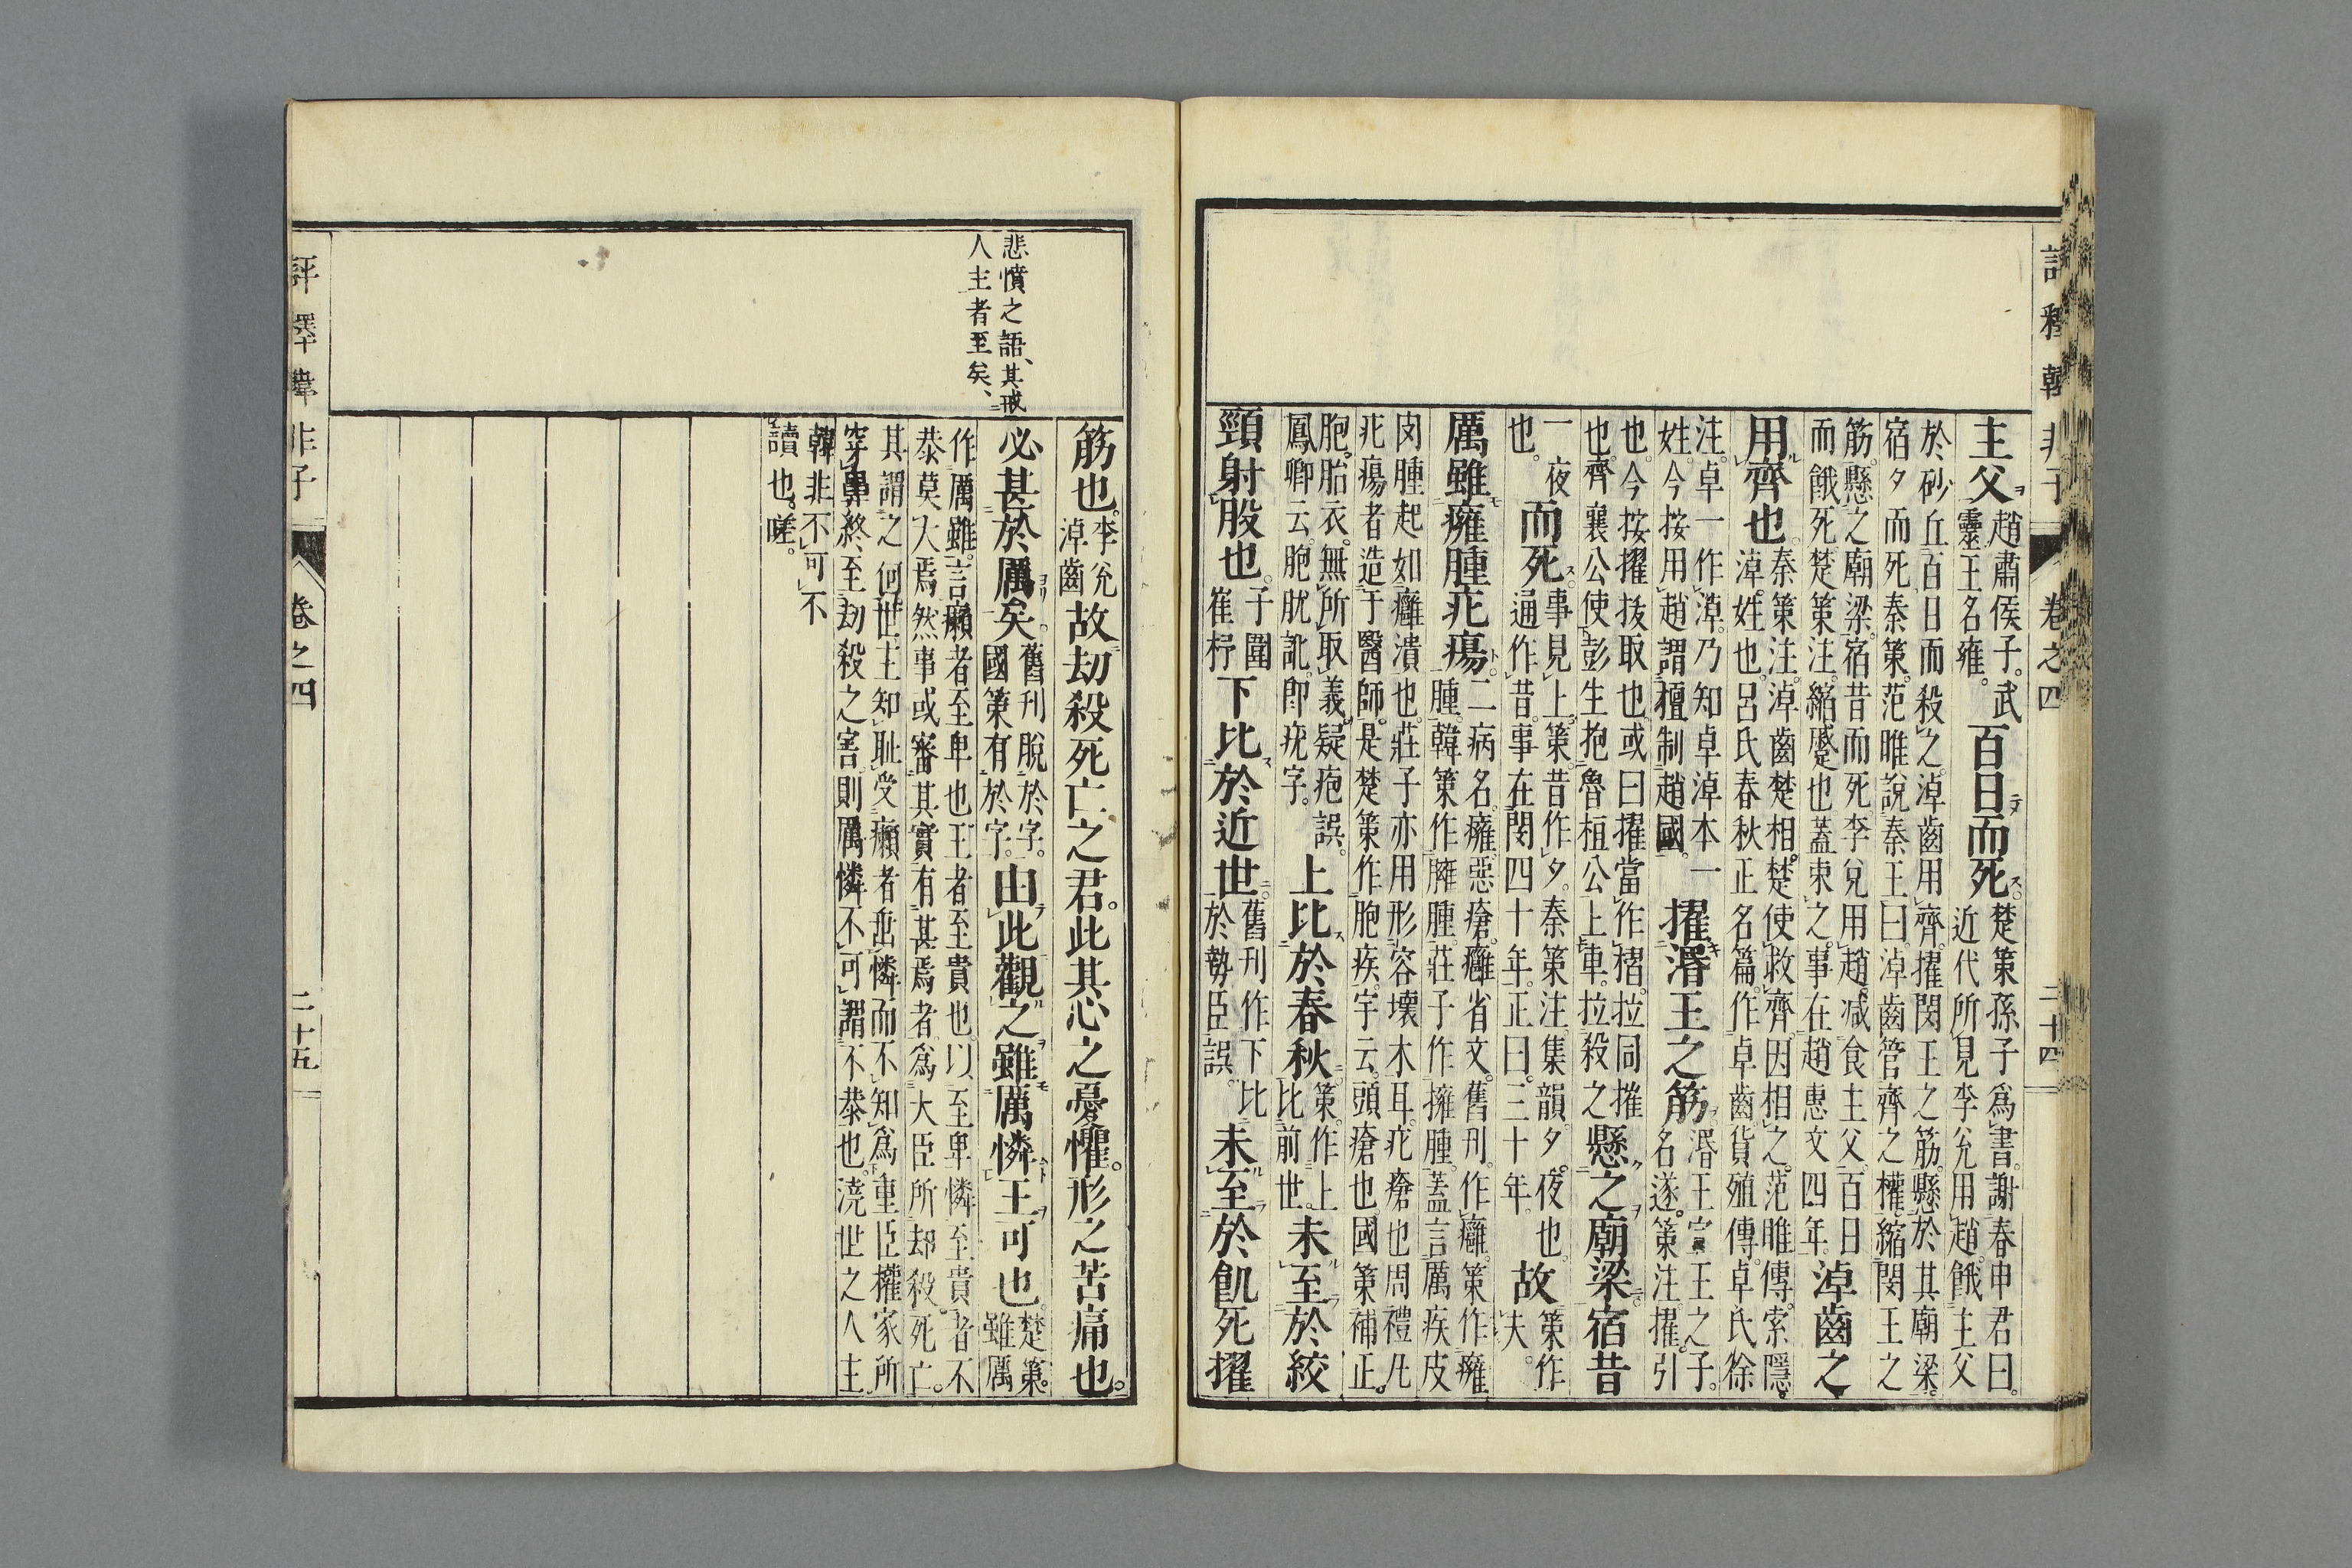 主父趙肅侯子。武靈王名雍。百日而死楚策孫子爲書。謝春申君曰。近代所見李兌用趙。餓主父
於砂丘。百日而殺之。淖齒用齊。擢閔王之筋。懸於其廟梁。宿夕而死。秦策。范雎說秦王曰。淖齒管齊之權。縮閔王之
筋。懸之廟梁。宿昔而死。李兌用趙。减食主父。百日而餓死。楚策注。縮蹙也。蓋束之。事在趙惠文四年。淖齒之
用齊也。秦策注。淖齒楚相。楚使救齊。因相之。范雎傳。索隱。淖。姓也。呂氏春秋正名篇。作卓齒。貨殖傳。卓氏徐
注。卓一作淖。乃知卓淖本一姓。今按用趙謂擅制趙國。擢湣王之筋湣王宣王之子。名遂。策注。擢。引
也。今按擢拔取也。或曰擢當作摺。拉同摧也。齊襄公使彭生抱魯桓公上車。拉殺之懸之廟梁。宿昔
一夜也。而死。事見上。策。昔作夕。秦策注。集韻。夕。夜也。通作昔。事在閔四十年。正曰。三十年。故策作夫。
厲雖癰腫疕瘍。二病名。癰。惡瘡。癰省文。舊刊。作癰。策作癰腫。韓策作臃腫。莊子作擁腫。蓋言厲疾皮
肉腫起如癰潰也。莊子亦用形容壞木耳。疕。瘡也。周禮。凡疕瘍者造于醫師。是楚策作胞疾。字云。頭瘡也。國策補正。
胞。胎衣。無所取義。疑疱誤。鳳卿云。胞肬訛。卽疣字。上比於春秋。策。作上比前世。未至於絞
頸射股也。子圍崔杼下比於近世。舊刊作下比於勢臣誤。未至於飢死擢
評釋韓非子
卷之四
二十四
悲憤之語、其戒
人主者至矣、
筋也。李兌淖齒故劫殺死亡之君。此其心之憂懼。形之苦痛也。
必甚於厲矣。舊刊脫於字。國策有於字。由此觀之。雖厲憐王可也。楚策。雖厲
作厲雖。言癩者至卑也。王者至貴也。以至卑憐至貴者不恭莫大焉。然事或審其實有甚焉者。爲大臣所却殺死亡。
其謂之何。世主知恥受癩者㐀憐而不知爲重臣權家所穿鼻。終至劫殺之害。則厲憐不可謂不恭也。澆世之人主
韓非不可不讀也。嗟。
評釋韓非子
卷之四
二十五